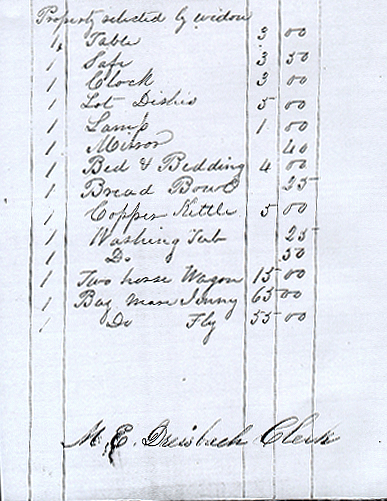 Property selected by widow
1 Table 3 00
1 Safe 3 50
1 Clock 3 00
1 Lot Dishes 5 00
1 Lamp 1 00
1 Mirror 40
1 Bed & Bedding 4 00
1 Bread Bowl 25
1 Copper Kettle 5 00
1 Washing Tub 25
1 Do 50
1 Two horse Wagon 15 00
1 Bay mare Jenny 65 00
1 Do Fly 55 00
M. E. Dreisbach Clerk